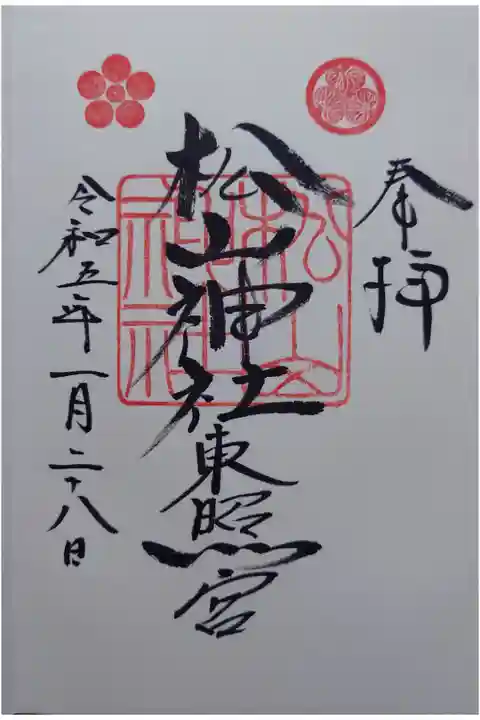 奉拝
松山神社東照宮
松山
神社
令和五年一月二十八日